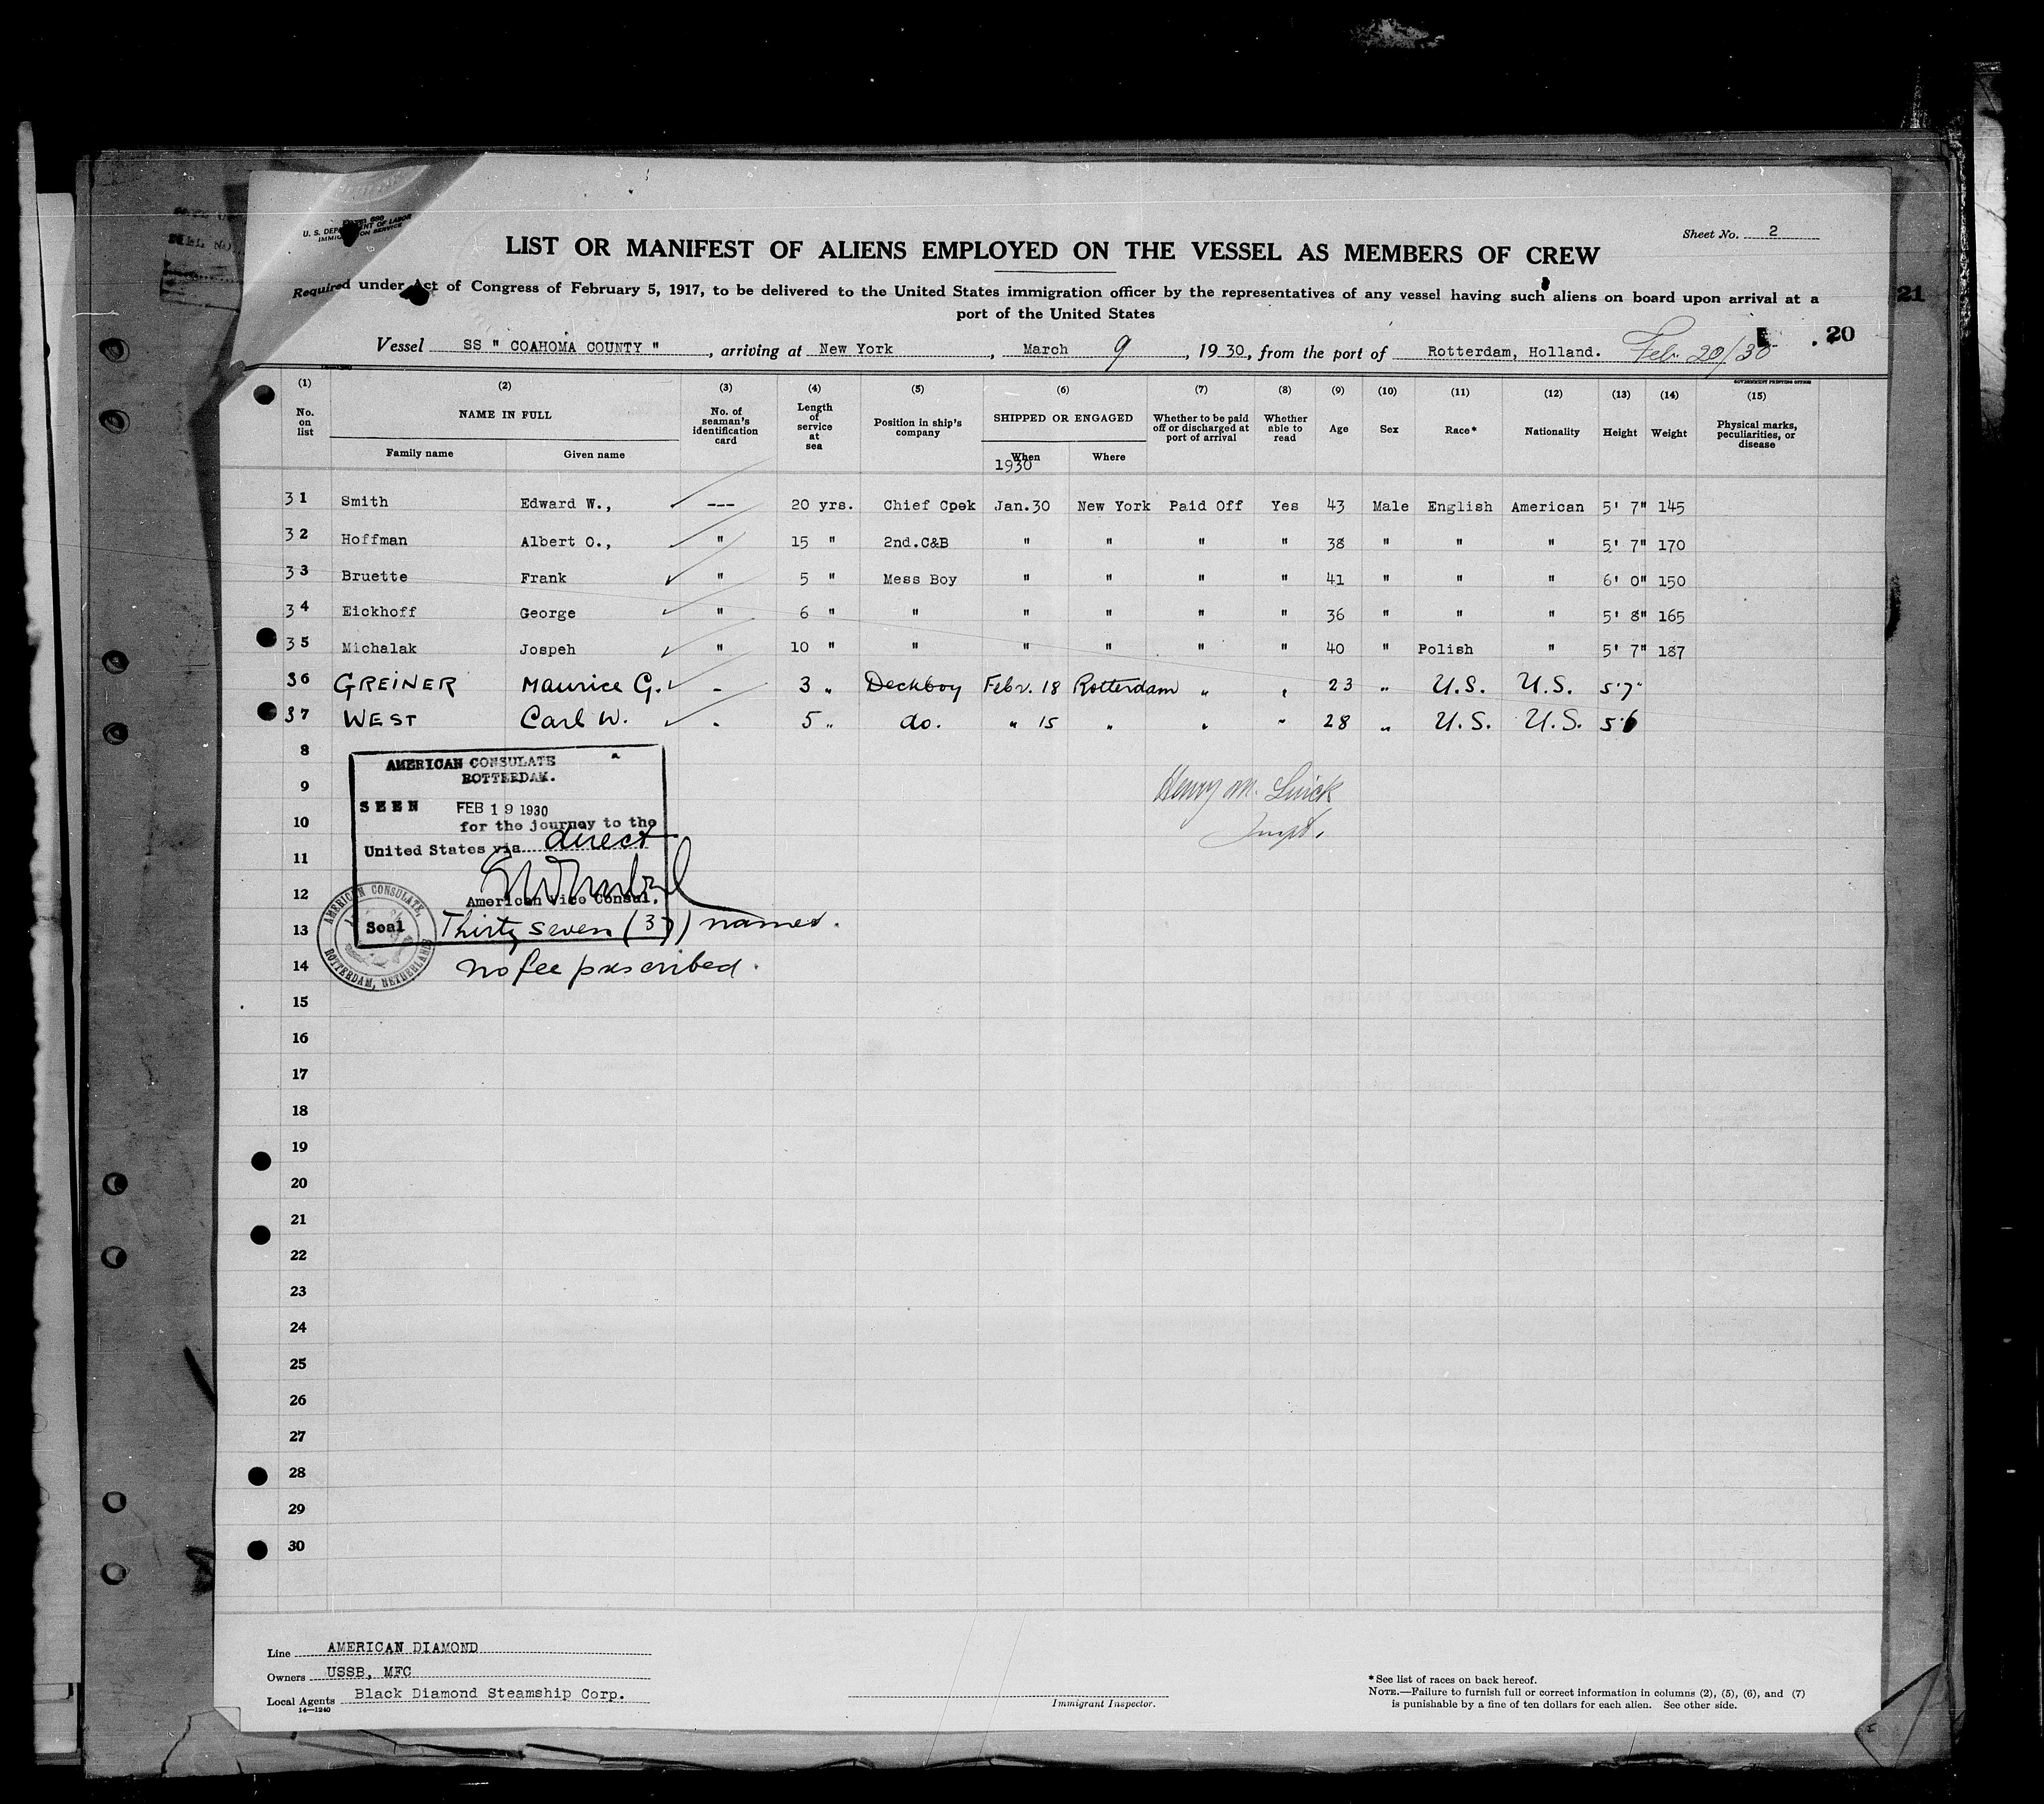 U. S. DEPARTMENT OF LABOR
IMMIGRATION SERVICE
Sheet No. 2
LIST OR MANIFEST OF ALIENS EMPLOYED ON THE VESSEL AS MEMBERS OF CREW
Required under Act of Congress of February 5, 1917, to be delivered to the United States immigration officer by the representatives of any vessel having such aliens on board upon arrival at a
port of the United States
21
20
Vessel SS " COAHOMA COUNTY " , arriving at New York , March 9 , 1930, from the port of Rotterdam, Holland. Feb. 20/30
GOVERNMENT PRINTING OFFICE
(1) (2) (3) (4) (5) (6) (7) (8) (9) (10) (11) (12) (13) (14) (15)
No. on list NAME IN FULL Family name Given name No. of seaman's identification card Length of service at sea Position in ship's company SHIPPED OR ENGAGED When Where Whether to be paid off or discharged at port of arrival Whether able to read Age Sex Race* Nationality Height Weight Physical marks, peculiarities, or disease
1930
31 Smith Edward W., --- 20 yrs. Chief Cpok Jan.30 New York Paid Off Yes 43 Male English American 5' 7" 145
32 Hoffman Albert O., " 15 " 2nd.C&B " " " " 38 " " " 5' 7" 170
33 Bruette Frank " 5 " Mess Boy " " " " 41 " " " 6' 0" 150
34 Eickhoff George " 6 " " " " " " 36 " " " 5' 8" 165
35 Michalak Jospeh " 10 " " " " " " 40 " Polish " 5' 7" 187
36 GREINER Maurice G. - 3 " Deckboy Febr. 18 Rotterdam " " 23 " U.S. U.S. 5'7"
37 WEST Carl W. " 5 " do. " 15 " " " 28 " U.S. U.S. 5'6
8
AMERICAN CONSULATE
ROTTERDAM.
9
SEEN FEB 19 1930
Henry M.
10
for the journey to the
Inspt.
United States via direct
11
12
American Vice Consul.
AMERICAN CONSULATE, ROTTERDAM, NETHERLANDS
13 Seal Thirty seven (37) names.
14 No fee prescribed.
15
16
17
18
19
20
21
22
23
24
25
26
27
28
29
30
Line AMERICAN DIAMOND
Owners USSB, MFC
Local Agents Black Diamond Steamship Corp.
14—1240
Immigrant Inspector.
* See list of races on back hereof.
NOTE.—Failure to furnish full or correct information in columns (2), (5), (6), and (7)
is punishable by a fine of ten dollars for each alien. See other side.